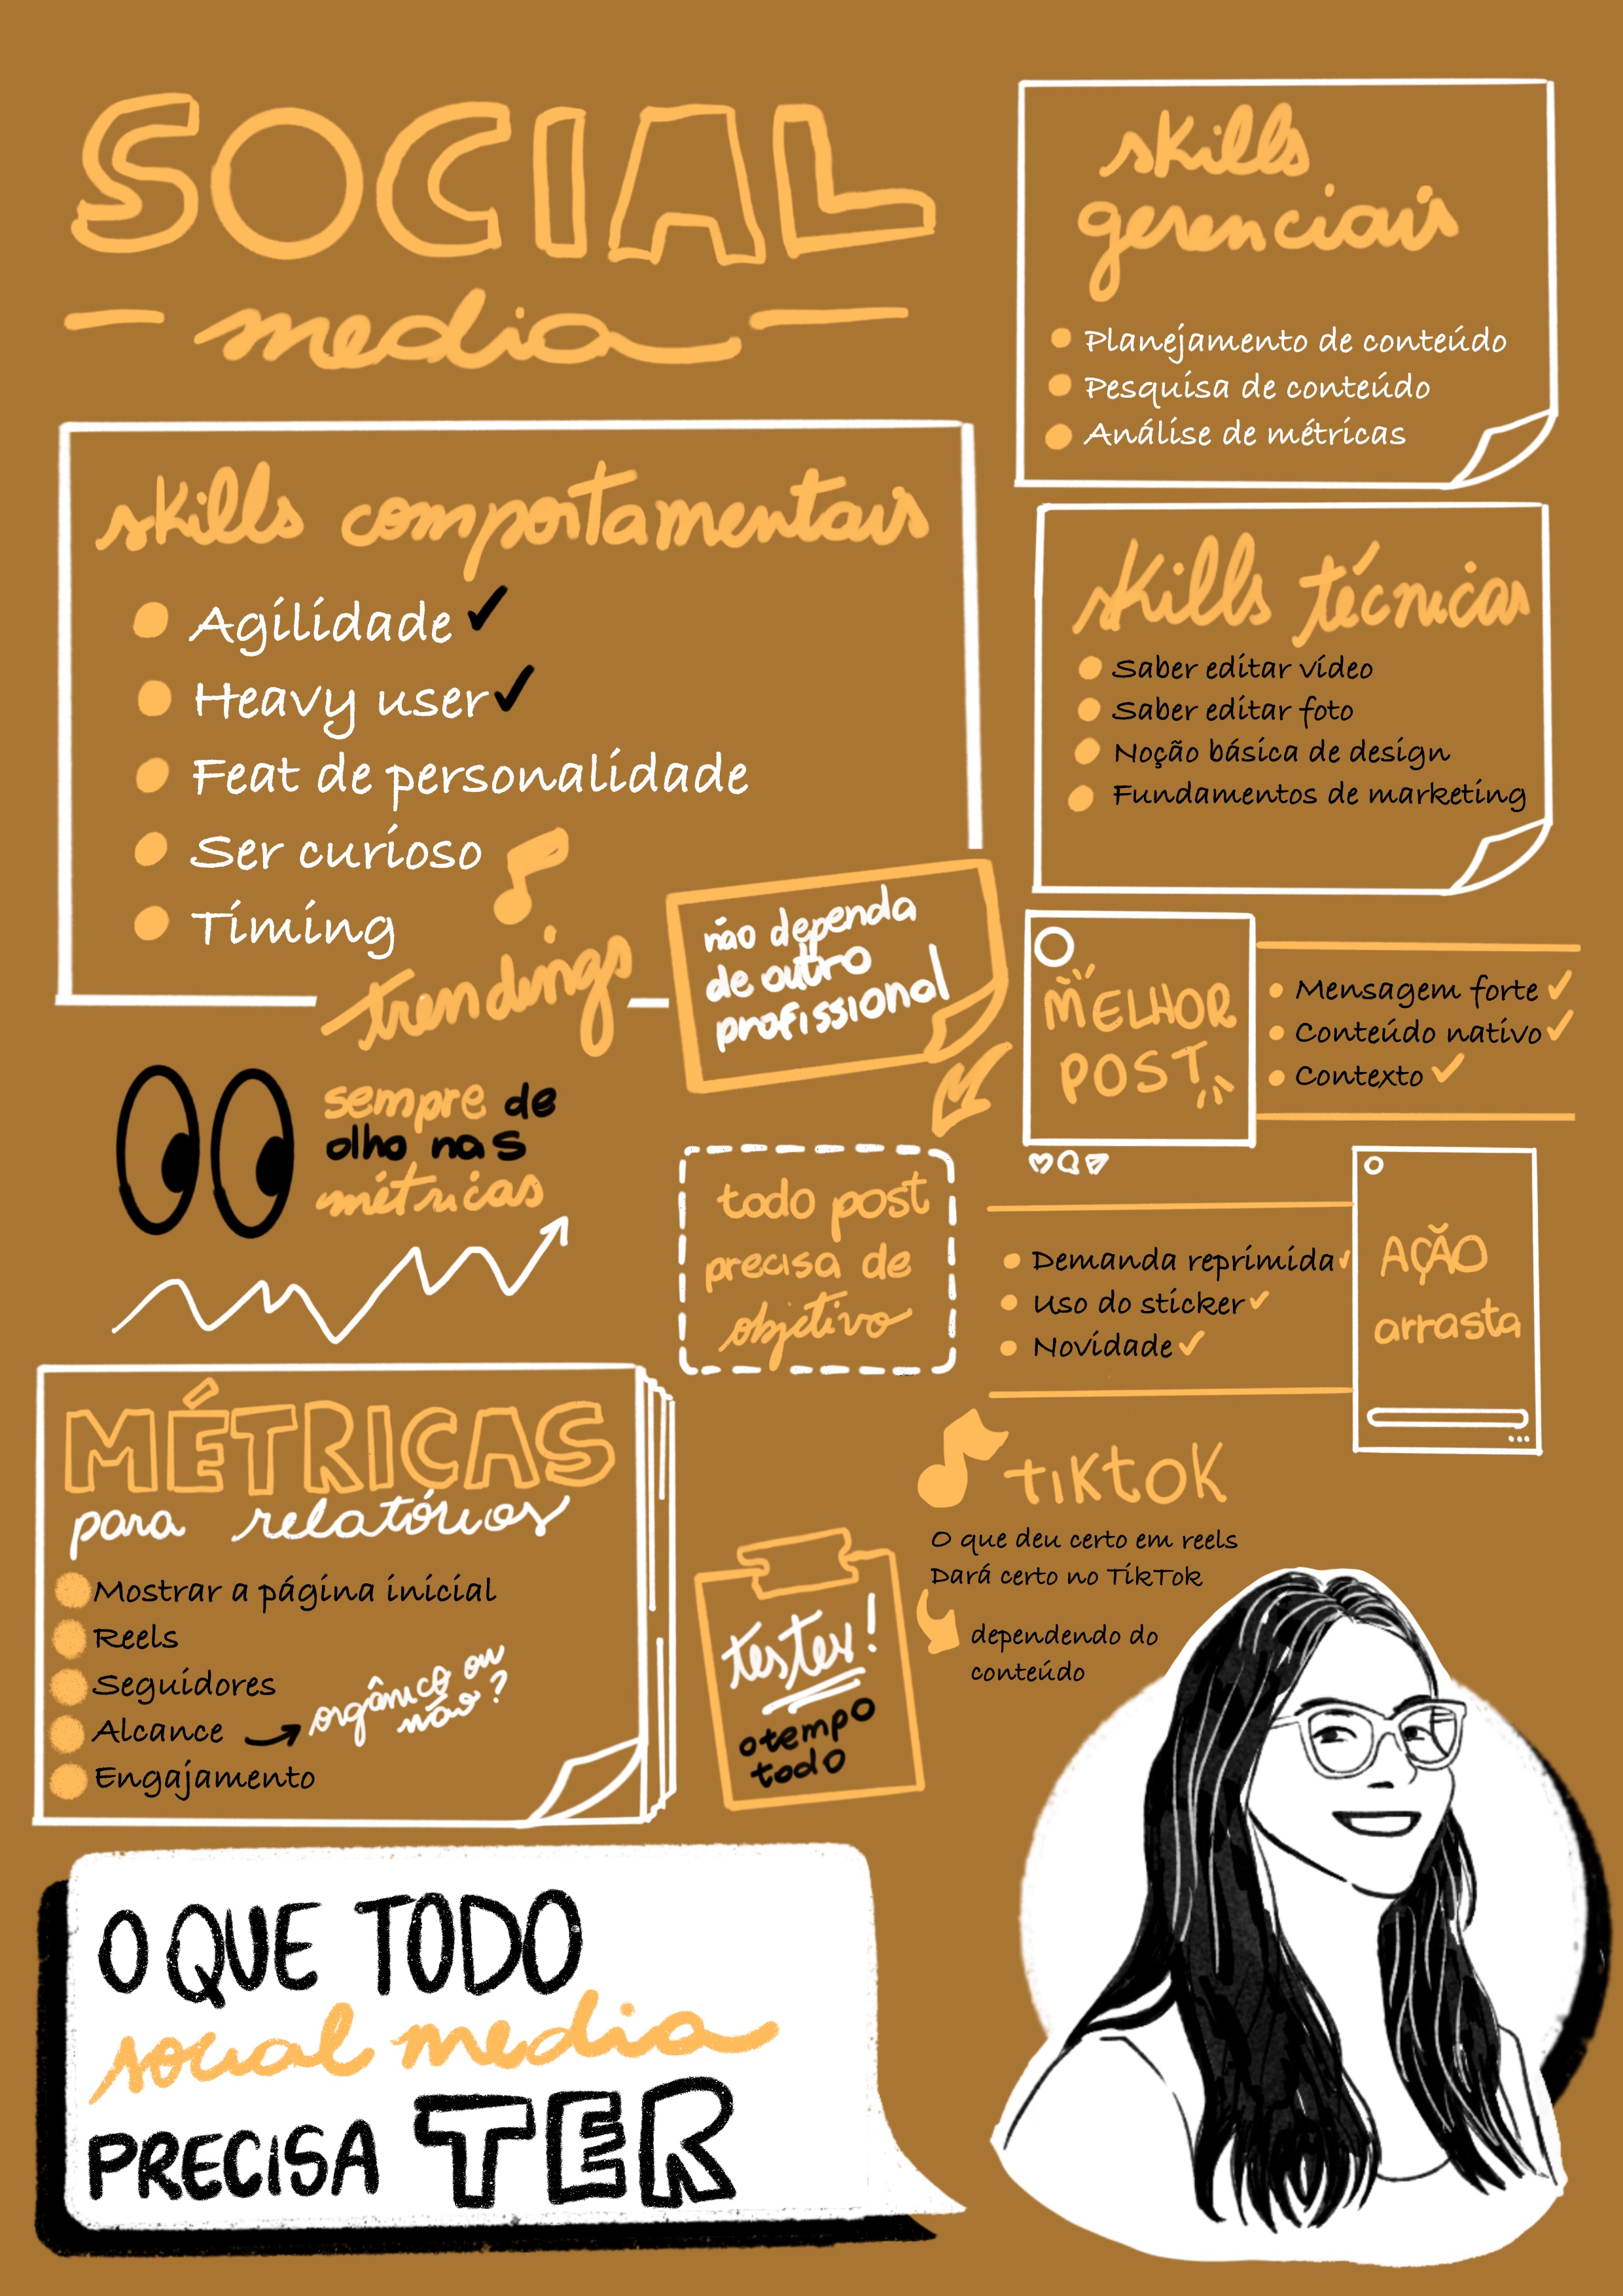 SOCIAL
media
skills
gerenciais
Planejamento de conteúdo
Pesquisa de conteúdo
Análise de métricas
skills comportamentais
Agilidade
Heavy user
Feat de personalidade
Ser curioso
Timing
trendings
não dependa
de outro
profissional
skills técnicas
Saber editar vídeo
Saber editar foto
Noção básica de design
Fundamentos de marketing
MELHOR
POST
Mensagem forte
Conteúdo nativo
Contexto
sempre de
olho nas
métricas
todo post
precisa de
objetivo
Demanda reprimida
Uso do sticker
Novidade
AÇÃO
arrasta
MÉTRICAS
para relatórios
Mostrar a página inicial
Reels
Seguidores
Alcance
orgânico ou
não?
Engajamento
testes!
o tempo
todo
TIKTOK
O que deu certo em reels
Dará certo no TikTok
dependendo do
conteúdo
O QUE TODO
social media
PRECISA TER